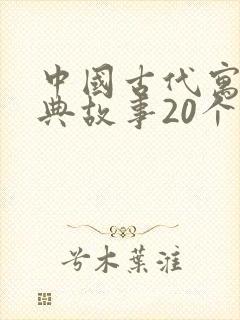 中國古代寓
典故事20个
兮木葉淮